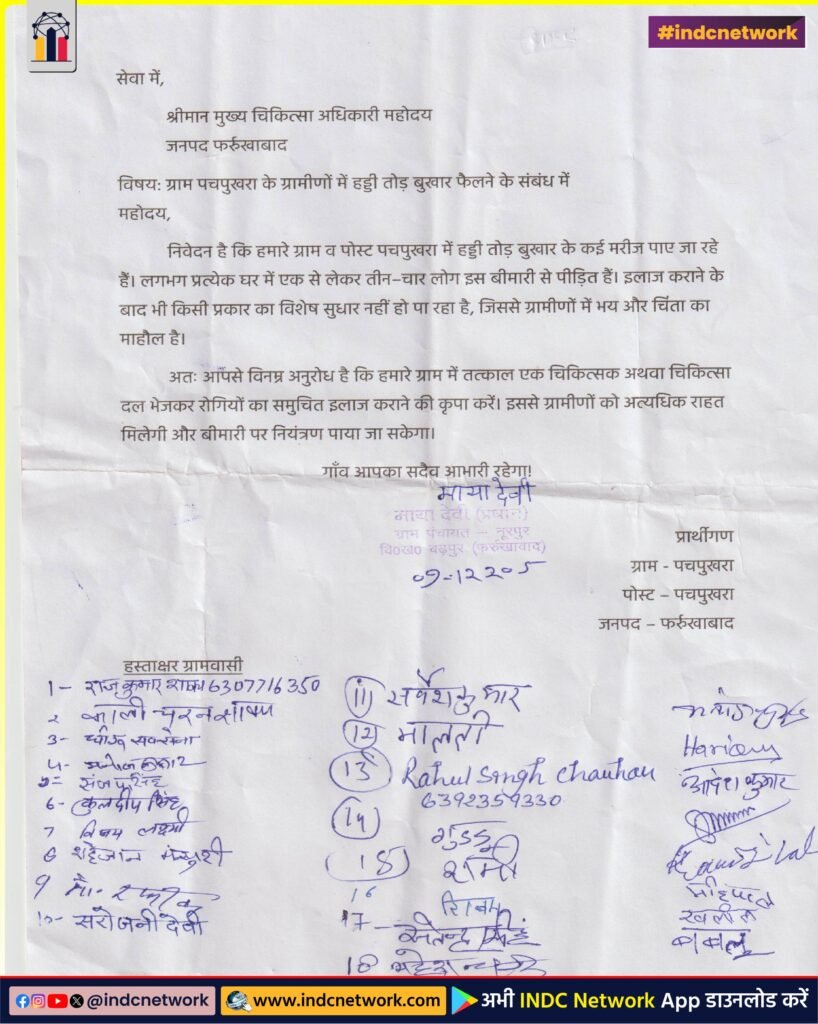 #indcnetwork
सेवा में,
श्रीमान मुख्य चिकित्सा अधिकारी महोदय
जनपद फर्रुखाबाद
विषय: ग्राम पचपुखरा के ग्रामीणों में हड्डी तोड़ बुखार फैलने के संबंध में
महोदय,
निवेदन है कि हमारे ग्राम व पोस्ट पचपुखरा में हड्डी तोड़ बुखार के कई मरीज पाए जा रहे
हैं। लगभग प्रत्येक घर में एक से लेकर तीन–चार लोग इस बीमारी से पीड़ित हैं। इलाज कराने के
बाद भी किसी प्रकार का विशेष सुधार नहीं हो पा रहा है, जिससे ग्रामीणों में भय और चिंता का
माहौल है।
अतः आपसे विनम्र अनुरोध है कि हमारे ग्राम में तत्काल एक चिकित्सक अथवा चिकित्सा
दल भेजकर रोगियों का समुचित इलाज कराने की कृपा करें। इससे ग्रामीणों को अत्यधिक राहत
मिलेगी और बीमारी पर नियंत्रण पाया जा सकेगा।
गाँव आपका सदैव आभारी रहेगा!
माया देवी
माया देवी (प्रधान)
ग्राम पंचायत – नूरपुर
वि०ख० बढ़पुर (फर्रुखाबाद)
09-12205
प्रार्थीगण
ग्राम - पचपुखरा
पोस्ट – पचपुखरा
जनपद – फर्रुखाबाद
हस्ताक्षर ग्रामवासी
1- राजकुमार 6307716350
2
3-
4-
5-
6- कुलदीप सिंह
7 विजय लक्ष्मी
8
9 मो.
10- सरोजनी देवी
(11) सर्वेश कुमार
(12) मालती
(13) Rahul Singh Chauhan
6392359330
(14) गुड्डू
(15) रामी
16 शिवम
17-
18
आदेश कुमार
बबलू
@indcnetwork
www.indcnetwork.com
अभी INDC Network App डाउनलोड करें